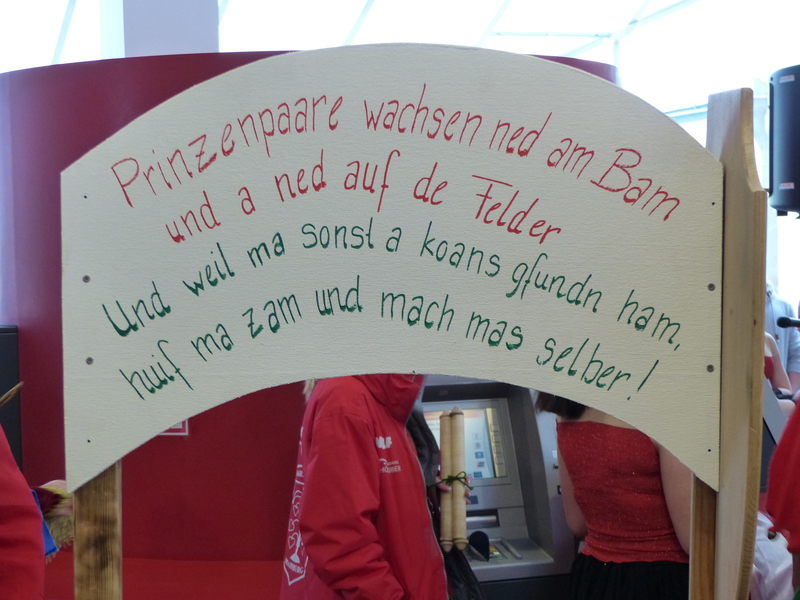 Prinzenpaare wachsen ned am Bam
und a ned auf de Felder
Und weil ma sonst a koans gfundn ham,
huif ma zam und mach mas selber!